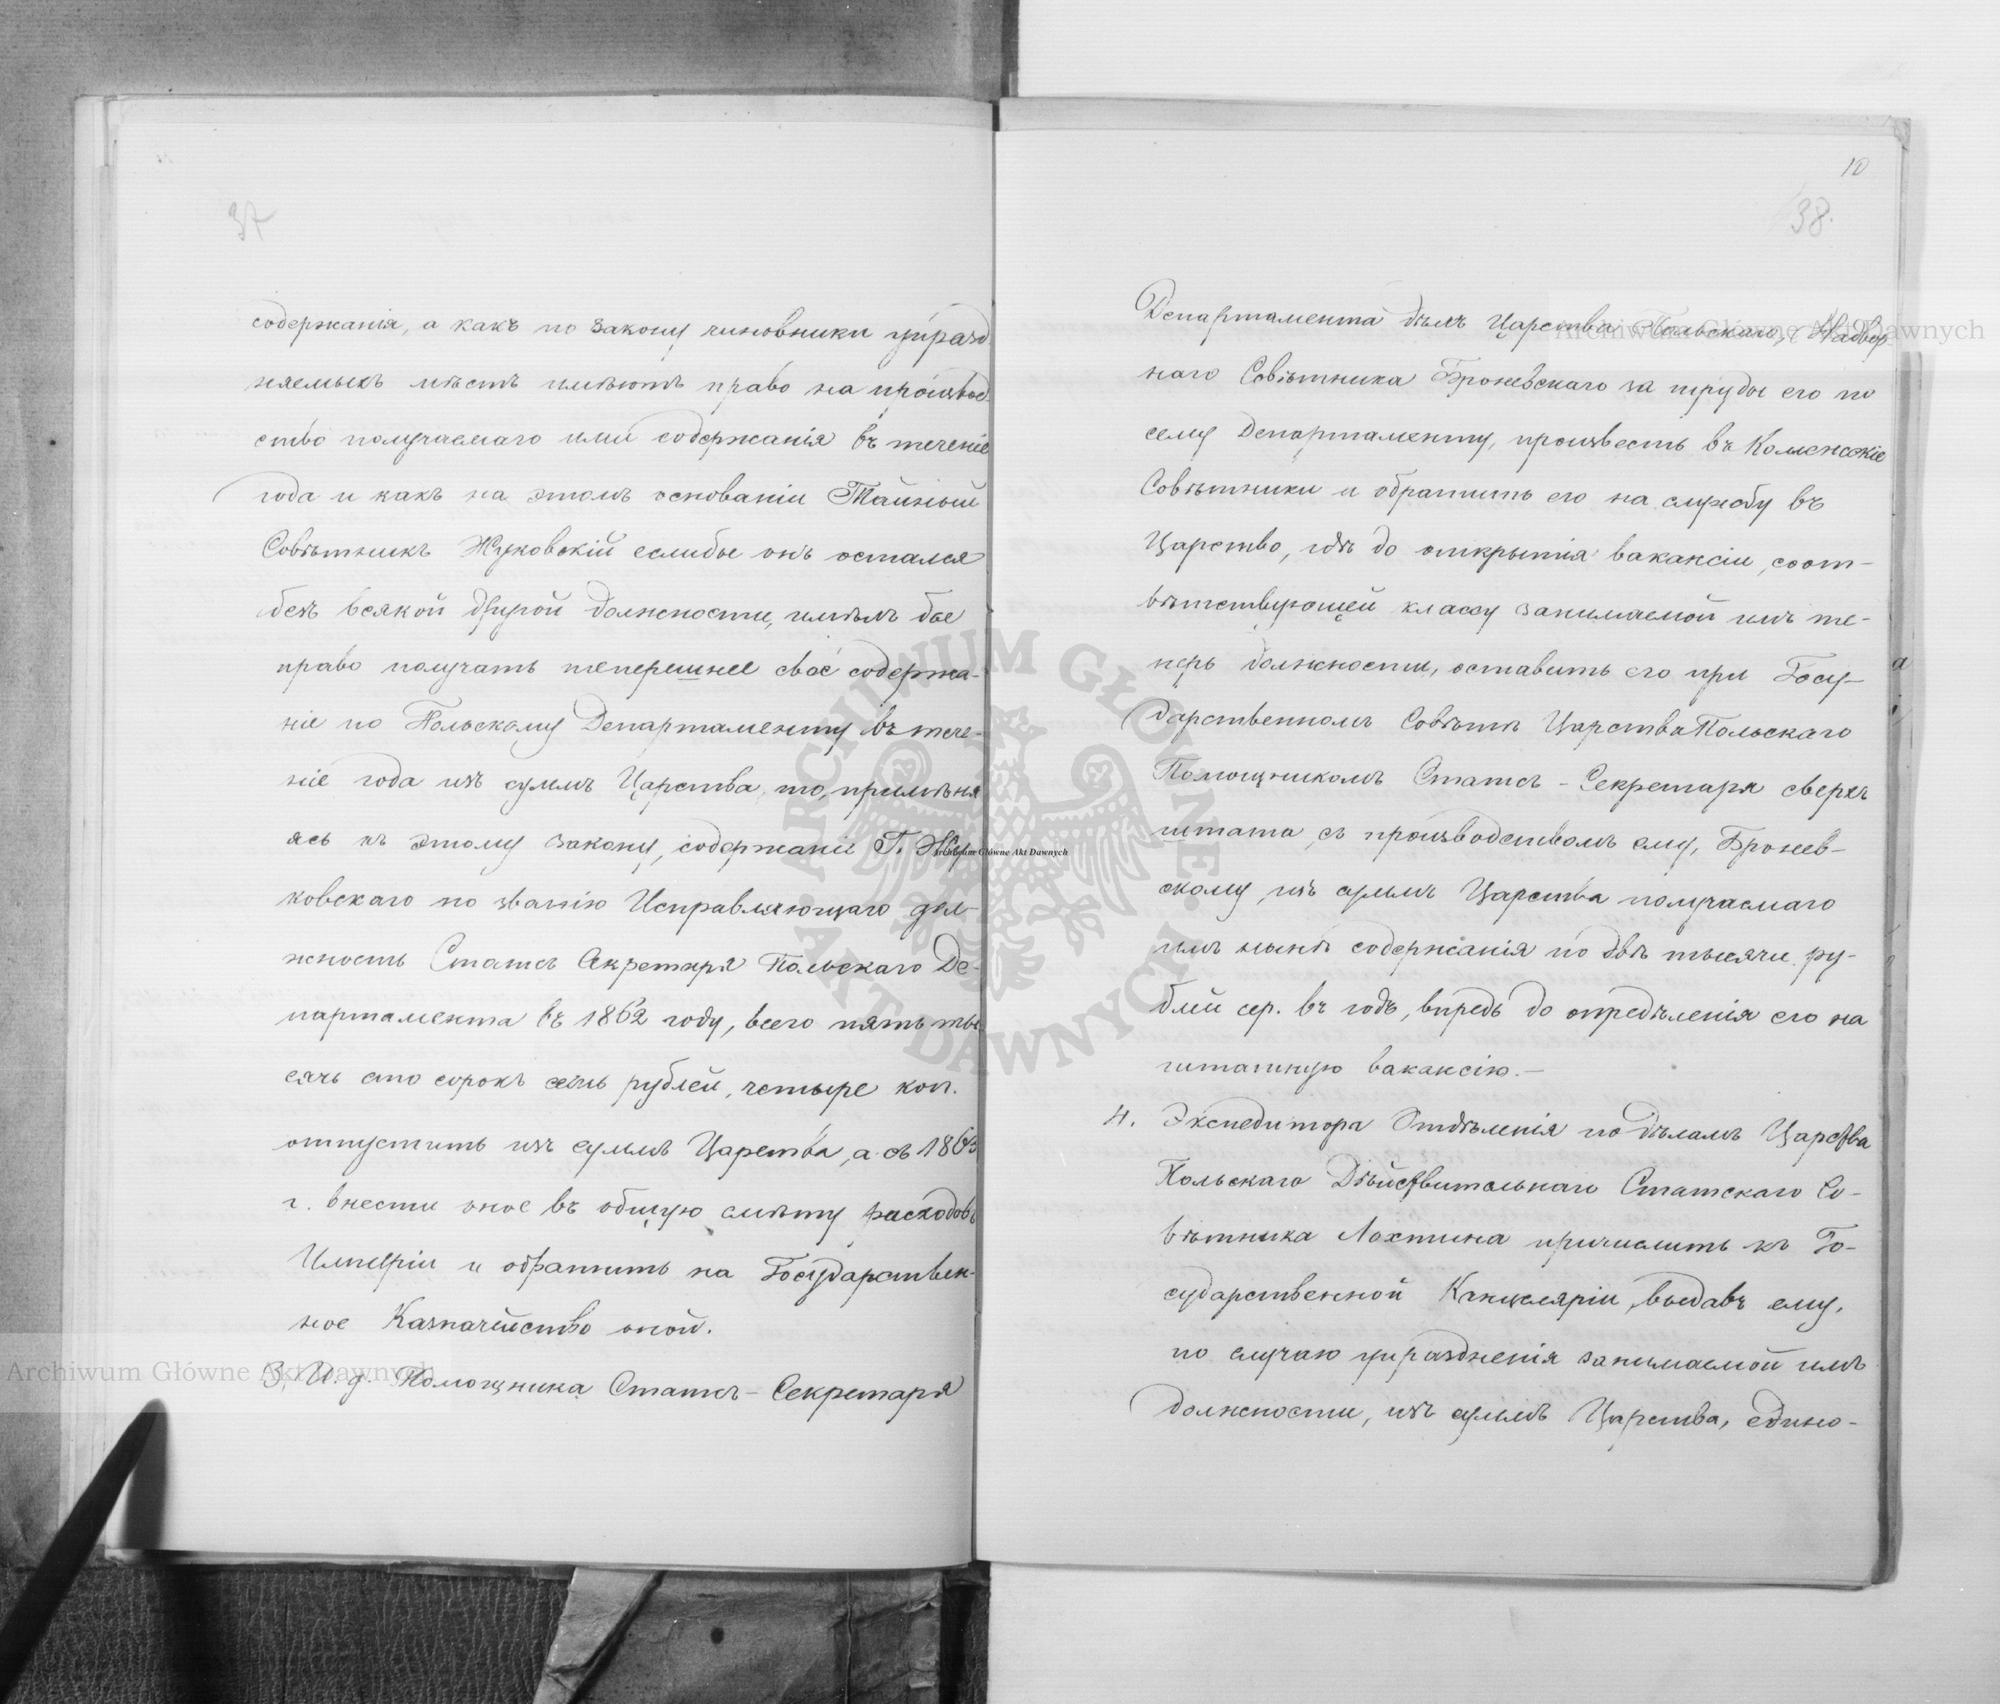 37
содержанія, а какъ по закону чиновники упразд
няемыхъ мѣстъ имѣютъ право на производ
ство получаемаго ими содержанія въ теченіе
года и какъ на этомъ основаніи Тайный
Совѣтникъ Жуковскій еслибы онъ остался
безъ всякой другой должности, имѣлъ бы
право получать теперешнее своё содержа-
ніе по Польскому Департаменту въ тече-
ніе года изъ суммъ Царства, то, примѣня
ясь къ этому закону, содержаніе Г. Жу-
ковскаго по званію Исправляющаго дол-
жность Статсъ Секретаря Польскаго Де-
партамента въ 1862 году, всего пять ты
сячь сто сорокъ семь рублей, четыре коп.
отпустить изъ суммъ Царства, а съ 1863
г. внести оное въ общую смѣту расходовъ
Имперіи и обратить на Государствен-
ное Казначейство оной.
3. И. д. Помощника Статсъ-Секретаря
10
38.
Департамента дѣлъ Царства Польскаго, Надвор
наго Совѣтника Броневскаго за труды его по
сему Департаменту, произвесть въ Коллежскіе
Совѣтники и обратить его на службу въ
Царство, гдѣ до открытія вакансіи, соот-
вѣтствующей классу занимаемой имъ те-
перь должности, оставить его при Госу-
дарственномъ Совѣтѣ Царства Польскаго
Помощникомъ Статсъ-Секретаря сверхъ
штата, съ производствомъ ему, Бронев-
скому, изъ суммъ Царства получаемаго
имъ нынѣ содержанія по двѣ тысячи ру-
блей сер. въ годъ, впредь до опредѣленія его на
штатную вакансію.—
4. Экспедитора Отдѣленія по дѣламъ Царства
Польскаго Дѣйствительнаго Статскаго Со-
вѣтника Лохтина причислить къ Го-
сударственной Канцеляріи, выдавъ ему,
по случаю упраздненія занимаемой имъ
должности, изъ суммъ Царства, едино-
Archiwum Główne Akt Dawnych
Archiwum Główne Akt Dawnych
Archiwum Główne Akt Dawnych
ARCHIWUM GŁÓWNE
AKT DAWNYCH